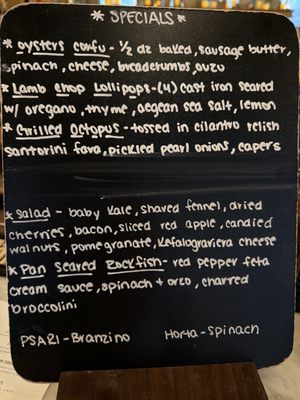 * SPECIALS *
* Oysters Corfu - 1/2 dz baked, sausage butter,
spinach, cheese, breadcrumbs, ouzo
* Lamb Chop Lollipops - (4) cast iron seared
w/ oregano, thyme, aegean sea salt, lemon
* Grilled Octopus - tossed in cilantro relish
santorini fava, pickled pearl onions, capers
* Salad - baby kale, shaved fennel, dried
cherries, bacon, sliced red apple, candied
walnuts, pomegranate, Kefalograviera cheese
* Pan Seared Rockfish - red pepper feta
cream sauce, spinach + orzo, charred
broccolini
PSARI - Branzino
Horta - Spinach